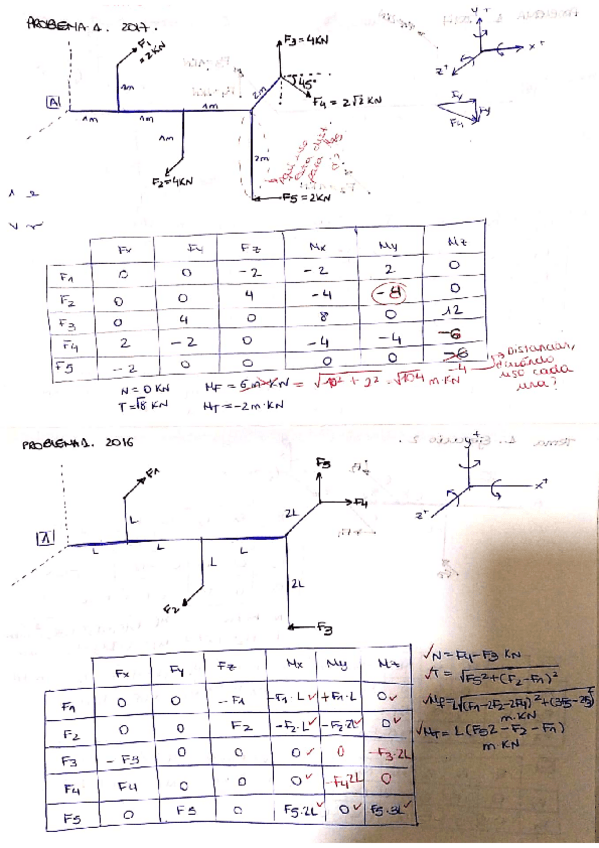 PROBLEMA 1. 2017.
F1 = 2KN
F3 = 4KN
Y+
X+
Z+
1m
2m
45°
F4 = 2√2 KN
Fx
Fy
F4
A
1m
1m
1m
1m
2m
F2=4KN
F5=2KN
Fx Fy Fz Mx My Mz
F1 0 0 -2 -2 2 0
F2 0 0 4 -4 -8 0
F3 0 4 0 8 0 12
F4 2 -2 0 -4 -4 -6
F5 -2 0 0 0 0 -6 -4
→ Distancias, cuándo uso cada una?
N = 0 KN MF = 6 m·KN = √10² + 2² = √104 m·KN
T = √8 KN MT = -2 m·KN
PROBLEMA 1. 2016
F1
F5
y+
x+
z+
2L
F4
L
A
L
L
L
L
2L
F2
F3
Fx Fy Fz Mx My Mz
F1 0 0 -F1 -F1·L✓ +F1·L 0✓
F2 0 0 F2 -F2·L✓ -F2·2L✓ 0✓
F3 -F3 0 0 0✓ 0 -F3·2L
F4 F4 0 0 0✓ -F4 2L 0
F5 0 F5 0 F5·2L✓ 0✓ F5·3L✓
✓N = F4-F3 KN
✓T = √F5²+(F2-F1)²
✓Mf = L√(F1-2F2-2F4)²+(3F5-2F3)² m·KN
✓MT = L(F5 2-F2-F1) m KN